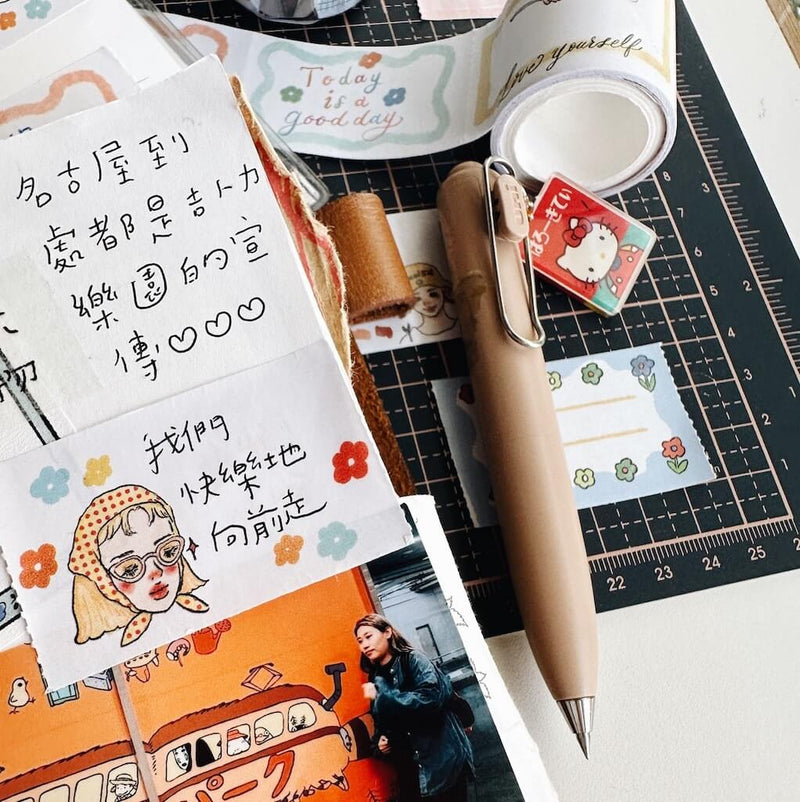 Today
is a
good day
love yourself
名古屋到
處都是吉卜力
樂園的宣
傳♡♡♡
物
はろーきてぃ
我們
快樂地
向前走
パーク
8
7
3
2
1
22
23
24
25